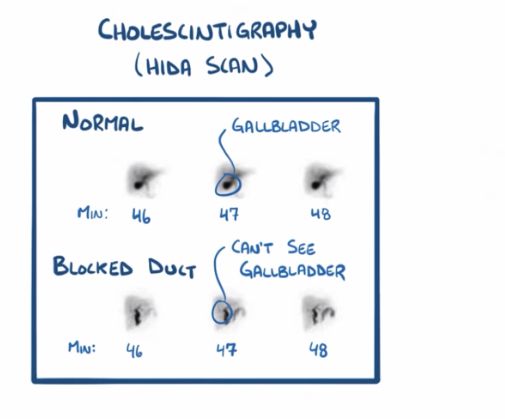 CHOLESCINTIGRAPHY
(HIDA SCAN)
NORMAL
GALLBLADDER
MIN: 46 47 48
BLOCKED DUCT
CAN'T SEE
GALLBLADDER
MIN: 46 47 48